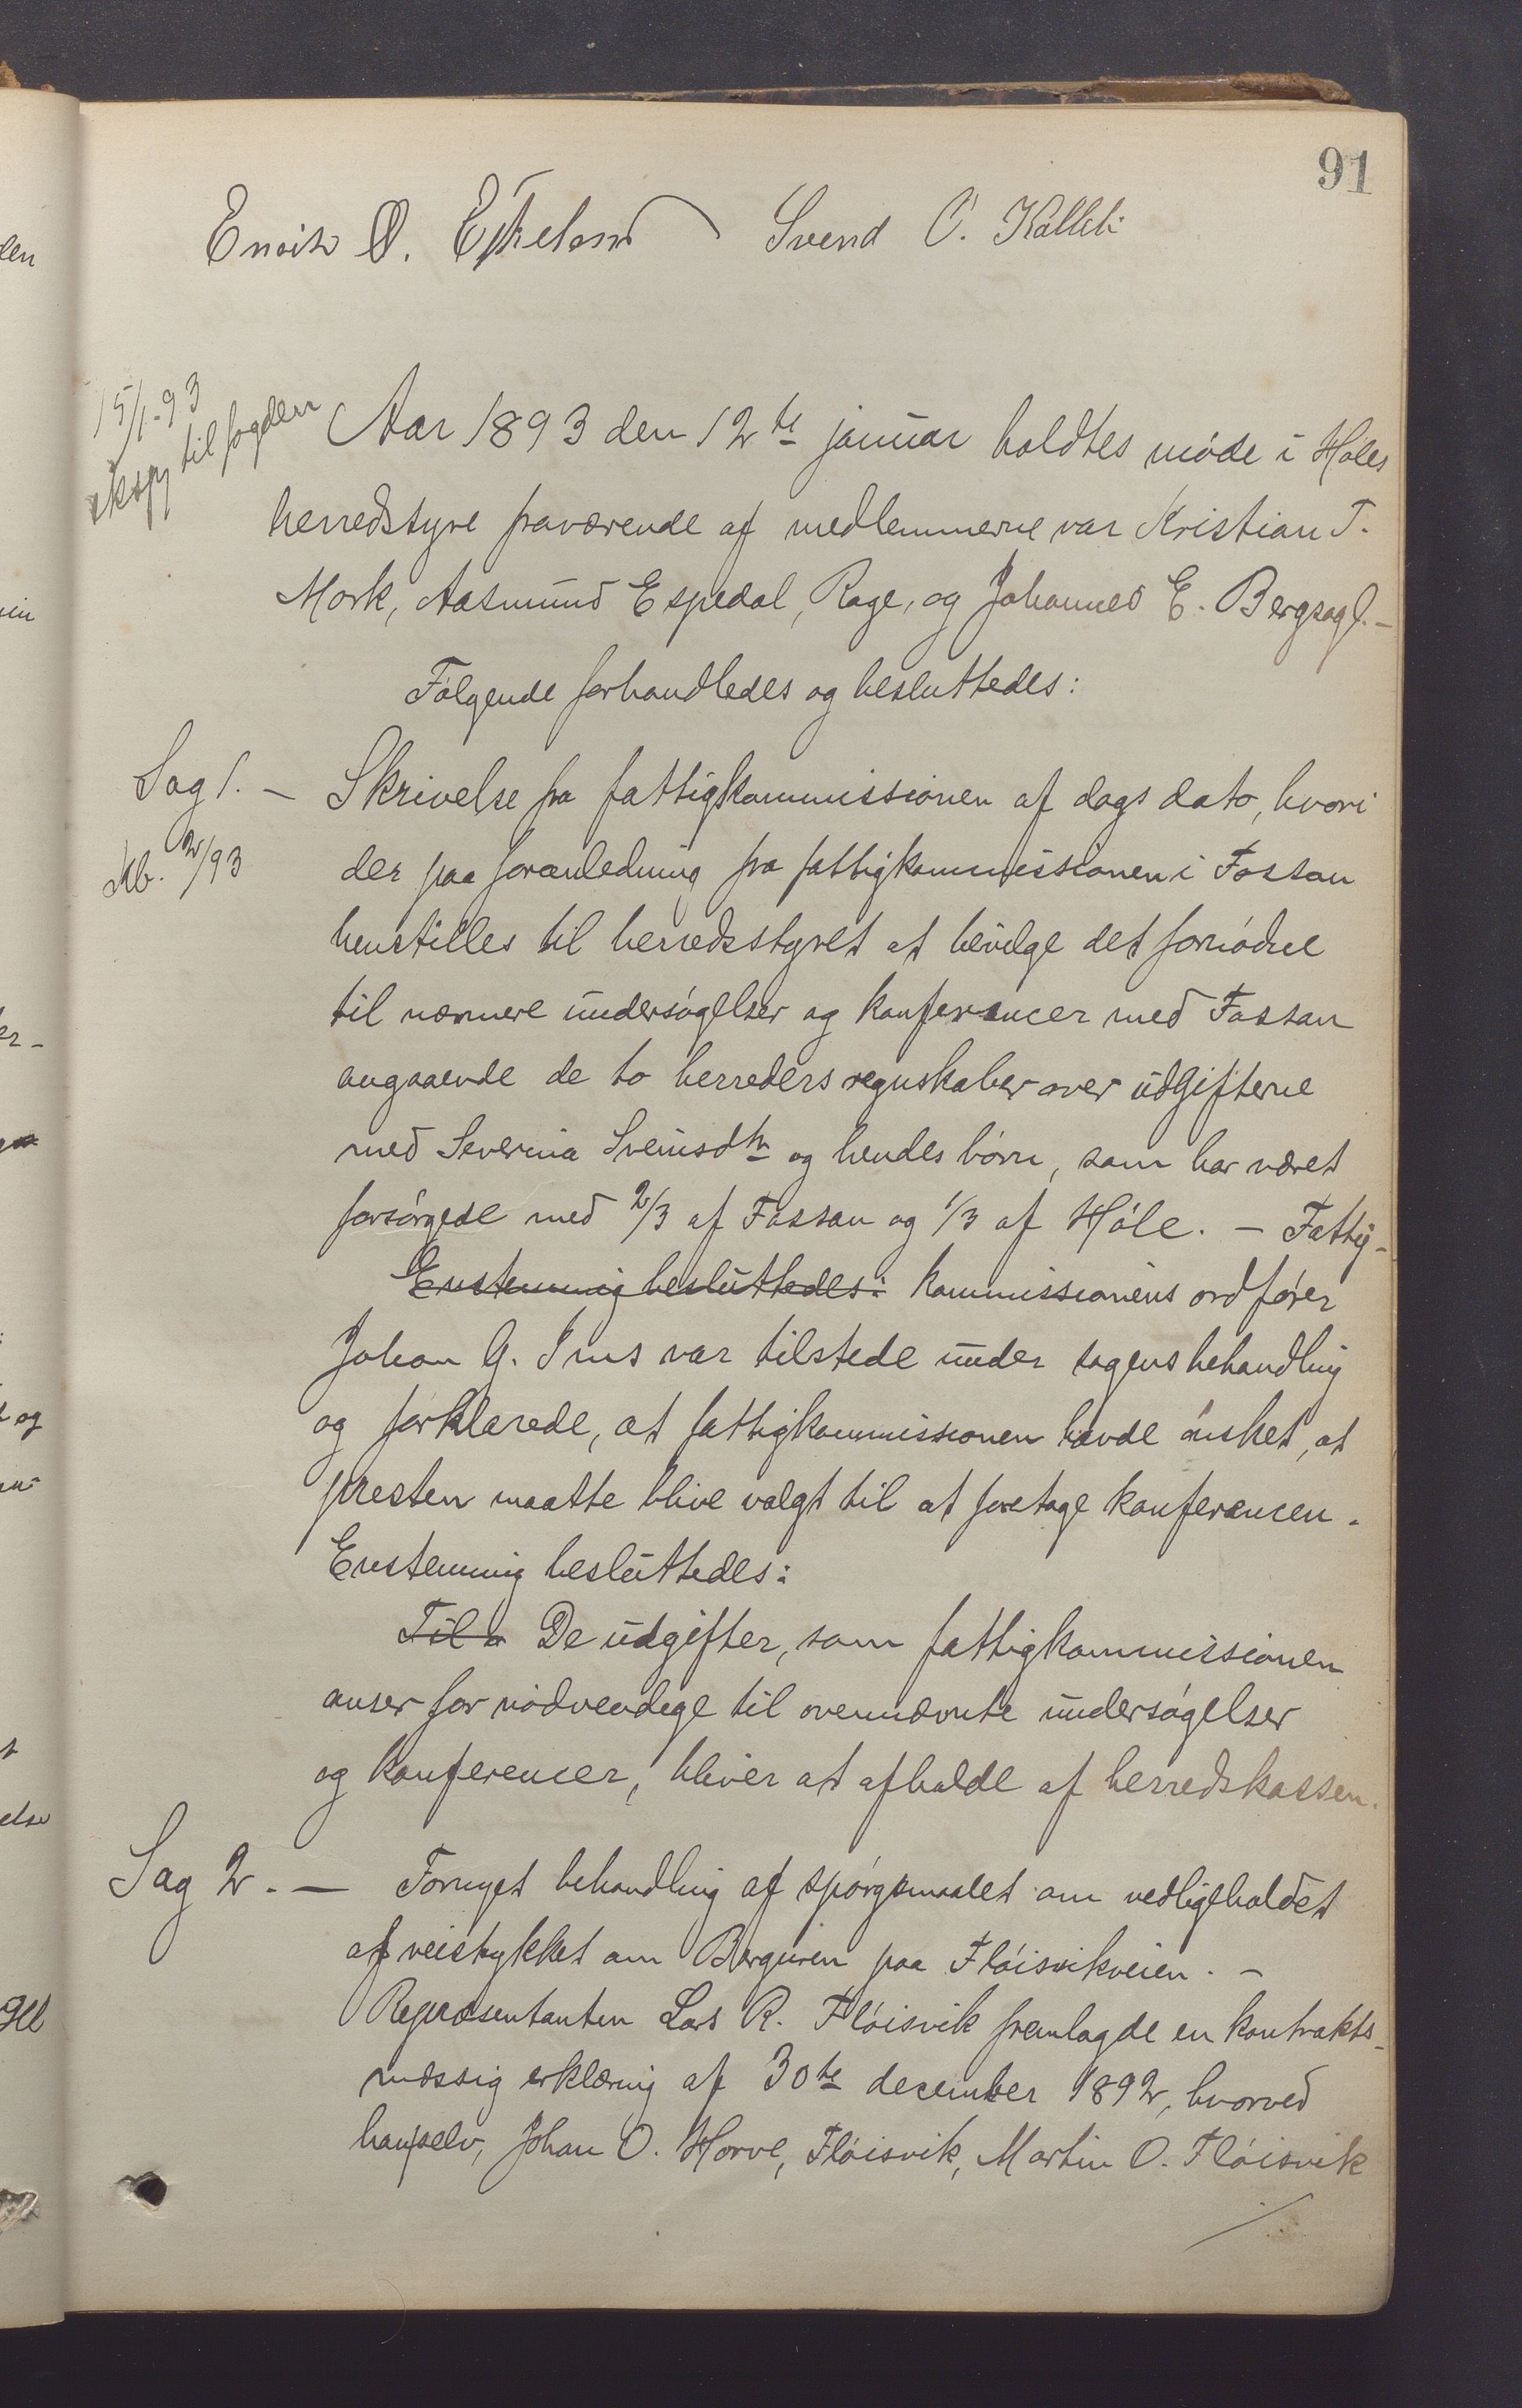 91
Enoch O. Eskeland Svend O. Kolleli
15/1-93
eksp. til fogden
Aar 1893 den 12te januar holdtes møde i Høles
herredstyre fraværende af medlemmerne var Kristian T.
Mork, Aasmund Espedal, Rage, og Johannes E. Bergsagl.-
Følgende forhandledes og besluttedes:
Sag 1. -
Kb. 2/93
Skrivelse fra fattigkommissionen af dags dato, hvori
der paa foranledning fra fattigkommissionen i Fossan
henstilles til herredsstyret at bevilge det fornødne
til nærmere undersøgelser og konferancer med Fossan
angaaende de to herreders regnskaber over udgifterne
med Severina Sveinsdtr og hendes børn, som har været
forsørgede med 2/3 af Fossan og 1/3 af Høle. - Fattig-
Enstemmig besluttedes: kommissionens ordfører
Johan G. Ims var tilstede under sagens behandling
og forklarede, at fattigkommissionen havde ønsket, at
presten maatte blive valgt til at foretage konferancen.
Enstemmig besluttedes:
Til De udgifter, som fattigkommissionen
anser for nødvendige til ovennævnte undersøgelser
og konferencer, bliver at afholde af herredskassen.
Sag 2. - Fornyet behandling af spørgsmaalet om vedligeholdet
af veistykket om Bergviren paa Fløisvikveien. -
Repræsentanten Lars R. Fløisvik fremlagde en kontrakts-
mæssig erklæring af 30te december 1892, hvorved
han selv, Johan O. Horve, Fløisvik, Martin O. Fløisvik